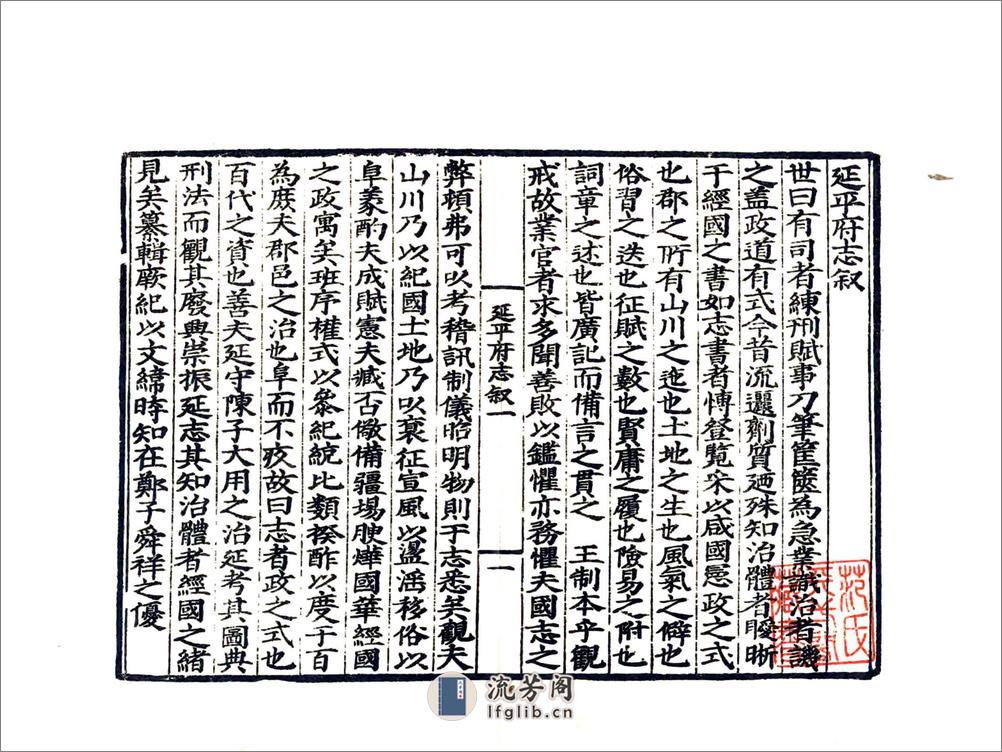 延平府志叙
世曰有司者練刑賦事刀筆筐篋為急業識治者譏
之盖政道有式今昔流邐劑質廼殊知治體者曖晰
于經國之書如志書者愽登覧采以咸國憲政之式
也郡之所有山川之迤也土地之生也風氣之僻也
俗習之迭也征賦之數也賢庸之履也險易之附也
詞章之述也皆廣記而備言之貫之 王制本乎觀
戒故業官者求多聞善敗以鑑懼亦務懼夫國志之
延平府志叙一
一
弊頓弗可以考稽訊制儀昭明物則于志悉矣觀夫
山川乃以紀國土地乃以裒征宣風以盪滛移俗以
阜蒙酌夫成賦憲夫臧否儆備疆埸腴燁國華經國
之政寓矣班序權式以叅紀統比類揆酢以度于百
為庻夫郡邑之治也阜而不疚故曰志者政之式也
百代之資也善夫延守陳子大用之治延考其圖典
刑法而觀其廢興崇振延志其知治體者經國之緒
見矣纂輯厥紀以文緯時知在鄭子舜祥之優
范氏
藏書
流芳阁
lfglib.cn